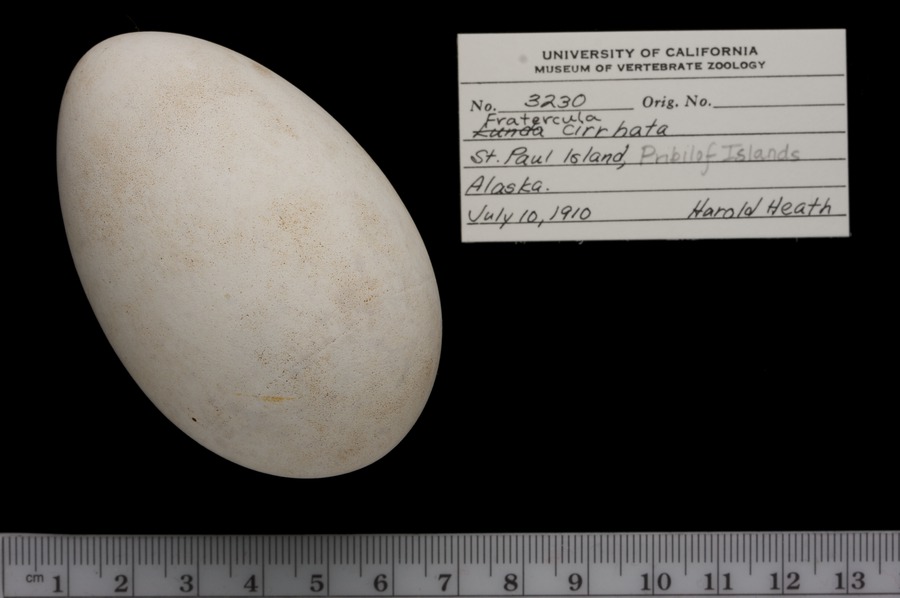 UNIVERSITY OF CALIFORNIA
MUSEUM OF VERTEBRATE ZOOLOGY
No. 3230 Orig. No.
Fratercula
Lunda cirrhata
St. Paul Island, Pribilof Islands
Alaska.
July 10, 1910 Harold Heath
cm 1 2 3 4 5 6 7 8 9 10 11 12 13